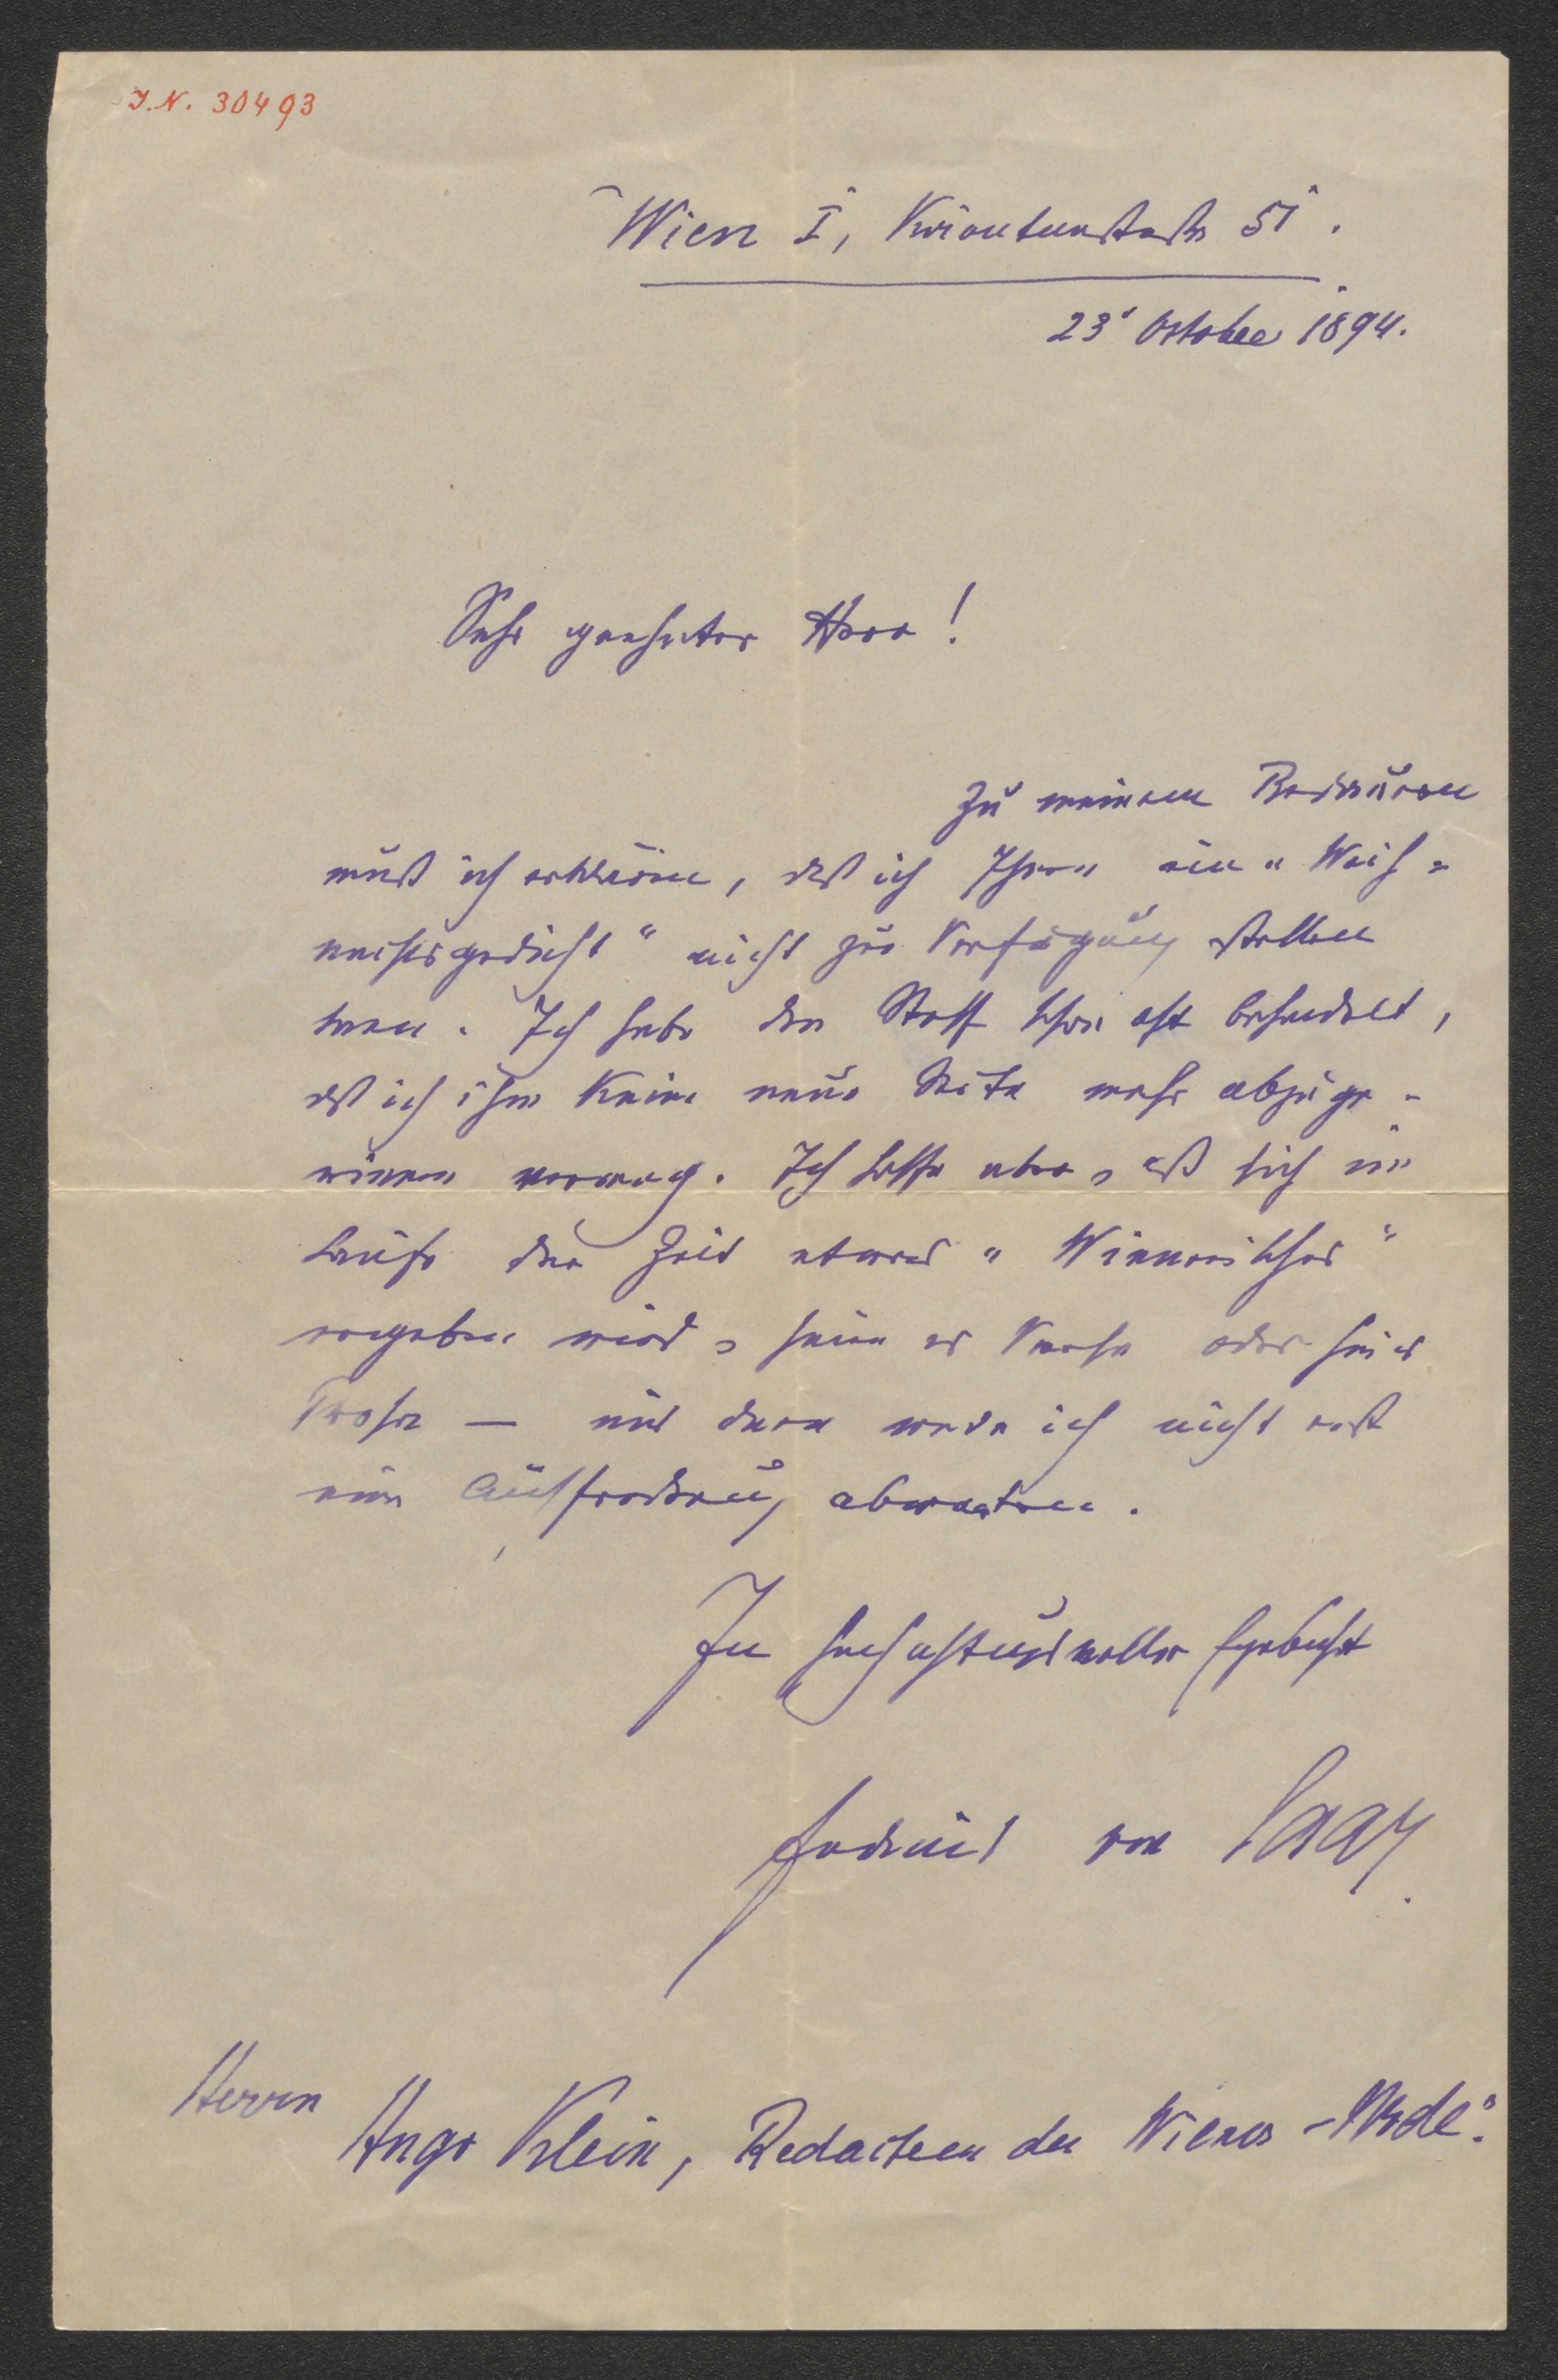 J.N. 30493
Wien I, Kärntnerstraße 51.
23' October 1894.
Sehr geehrter Herr!
Zu meinem Bedauern
muß ich erklären, daß ich Ihnen ein „Weih=
nachtsgedicht“ nicht zur Verfügung stellen
kann. Ich habe den Stoff schon oft behandelt,
daß ich ihm keine neue Seite mehr abzuge-
winnen vermag. Ich hoffe aber, daß sich im
Laufe der Zeit etwas „Wienerisches“
ergeben wird, seien es Verse oder sei es
Prosa — und dann werde ich nicht erst
eine Aufforderung abwarten.
In hochachtungsvoller Ergebenheit
Ferdinand von Saar.
Herrn
Hugo Klein, Redacteur der Wiener-Mode“.